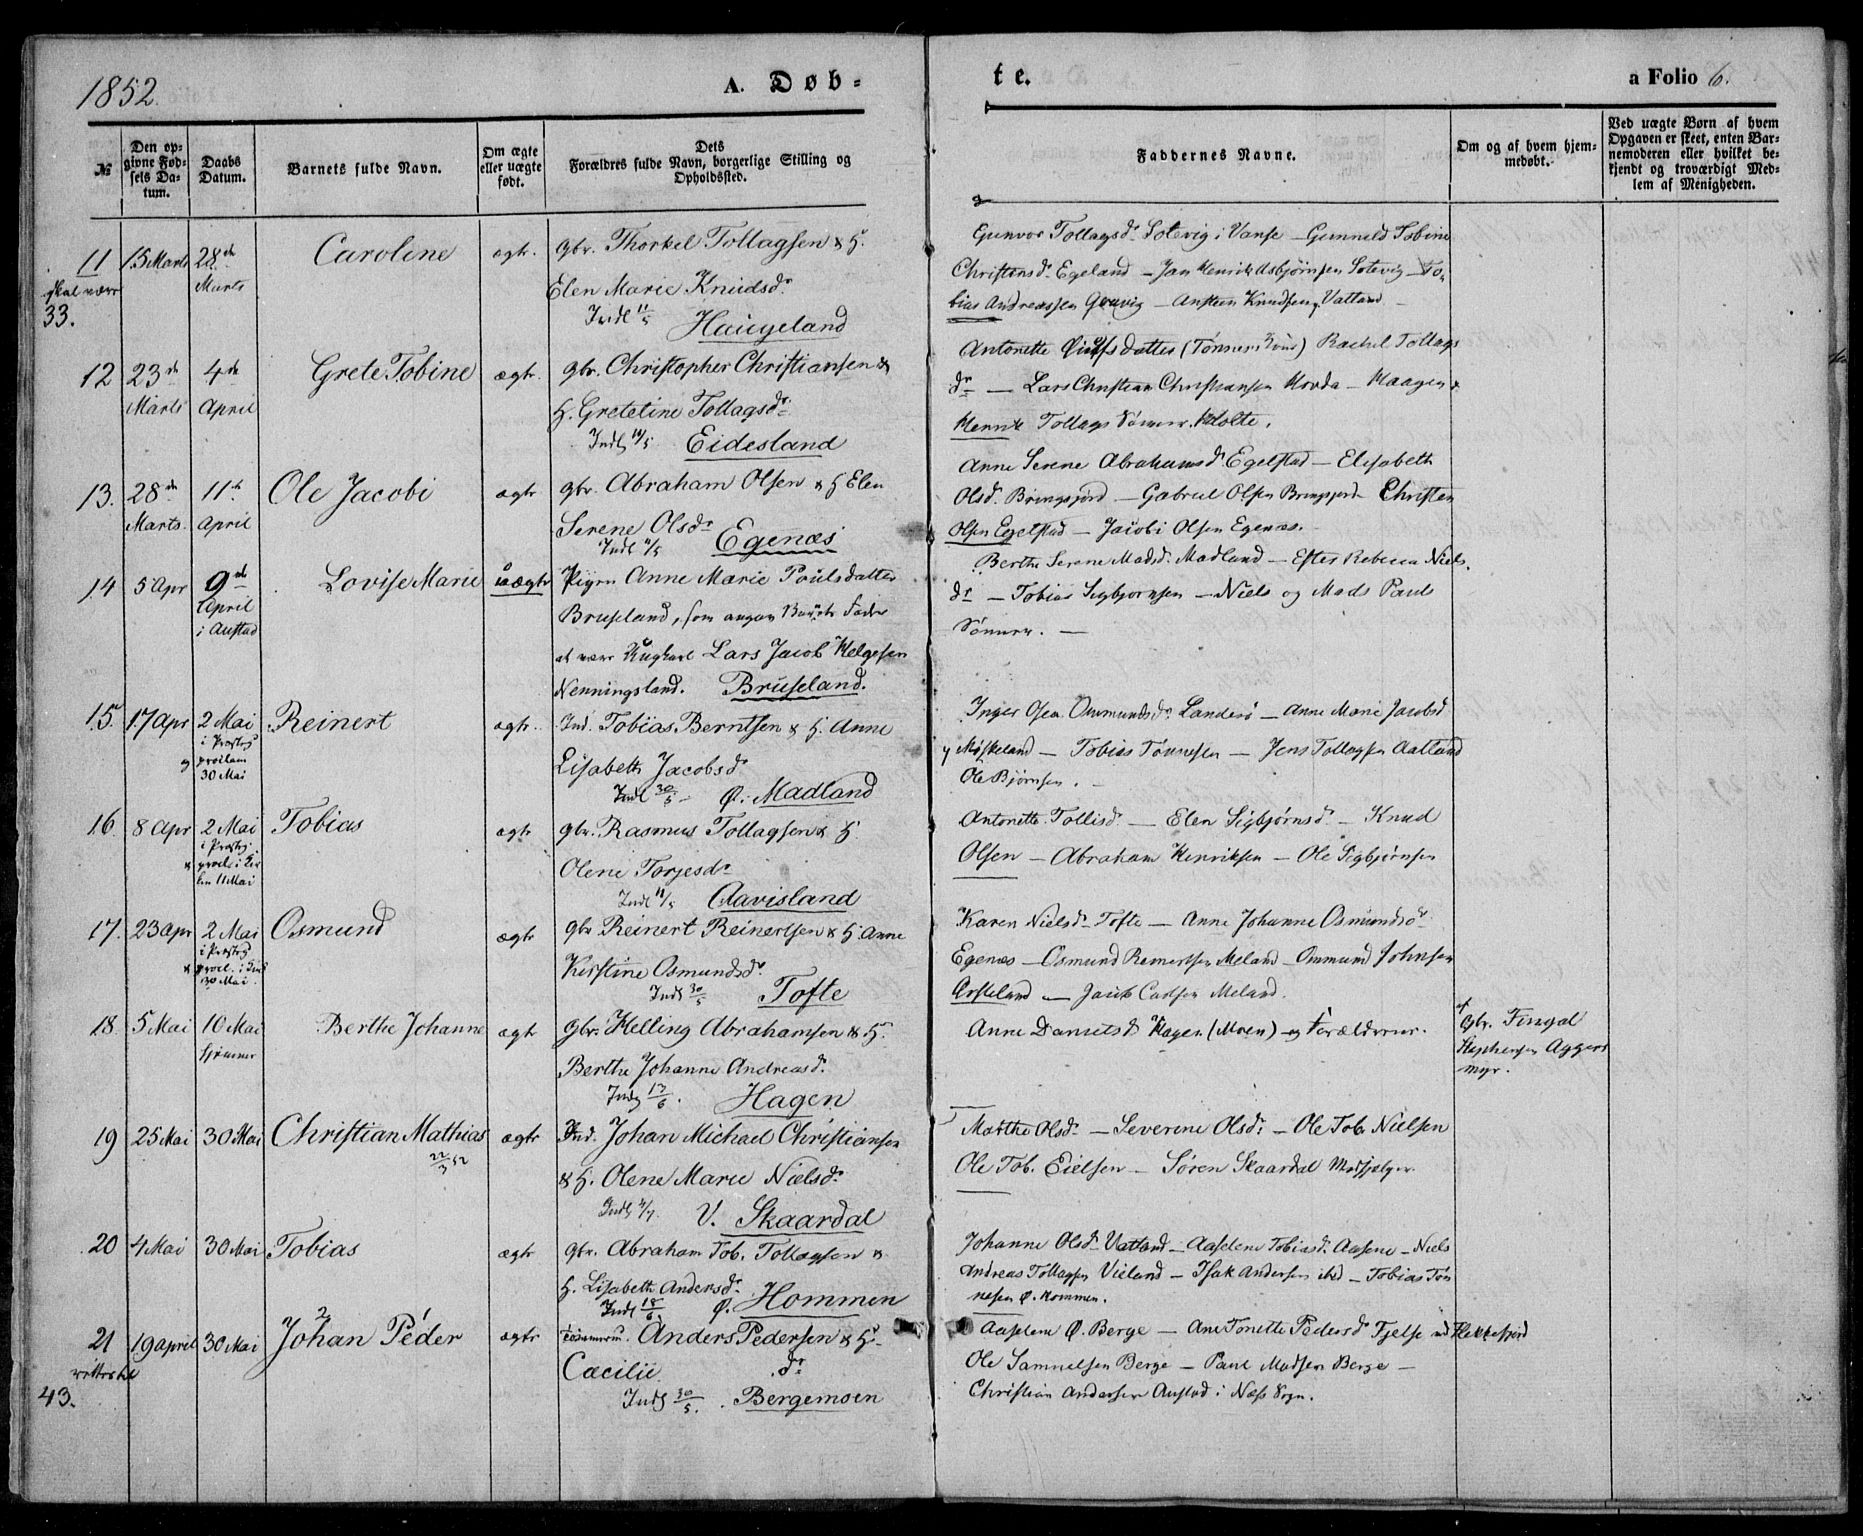 1852.
A. Døb-
te.
a Folio 6.
№
Den op-
givne Fød-
sels Da-
tum.
Daabs
Datum.
Barnets fulde Navn.
Om ægte
eller uægte
født.
Dets
Forældres fulde Navn, borgerlige Stilling og
Opholdssted.
Faddernes Navne.
Om og af hvem hjem-
medøbt.
Ved uægte Børn af hvem
Opgaven er skeet, enten Bar-
nemoderen eller hvilket be-
kjendt og troværdigt Med-
lem af Menigheden.
11
skal være
33.
15 Marts
28de
Marts
Caroline
ægte.
Gbr. Thorkel Tollagsen & H.
Elen Marie Knudsdr.
Indl 11/5 Haugeland
Gunvor Tollagsdr. Sotevig i Vanse - Gunneld Tobine
Christensdr. Egeland - Jan Henrik Asbjørnsen Sotevig - To-
bias Andreassen - Ansteen Knudsen Vatland -
12
23de
Marts
4de
April
Grete Tobine
ægte.
gbr. Christopher Christiansen &
H. Gretetine Tollagsdr.
Indl 11/5 Eidesland
Antonette datter (Tønnes Kone) Rachel Tollags
dr - Lars Christian Christiansen Hovda - Haagen &
Henrik Tollags Sønner. Holte.
13.
28de
Marts.
11te
April
Ole Jacobi
ægte
gbr. Abraham Olsen & H Elen
Serene Olsdr
Indl 11/5 Egenæs
Anne Serene Abrahamsd. Egelstad - Elisabeth
Olsd. Bringsjord - Gabriel Olsen Bringsjord - Christen
Olsen Egelstad - Jacobi Olsen Egenæs.
14
5 Apr
9de
April
i Austad
Lovise Marie
uægte
Pigen Anne Marie Poulsdatter
Bruseland, som angav Barnets Fader
at være Ungkarl Lars Jacob Helgesen
Nenningsland. Bruseland.
Berthe Serene Madsd. Madland - Ester Rebecca Niels.
dr - Tobias Sigbjørnsen - Niels og Mads Pauls
Sønner. -
15.
17 Apr
2 Mai
i Præstg
proclam
30 Mai
Reinert
ægte.
Ind. Tobias Berntsen & H. Anne
Lisabeth Jacobsdr
Indl 30/5 - Ø. Madland
Inger Osea Ommundsdr. Landersø - Anne Marie Jacobsd
y Møskeland - Tobias Tønnesen - Jens Tollagsen Aatland
Ole Bjørnsen.
16.
8 Apr
2 Mai
i Præstg.
& procl. i Kir
ken 11 Mai
Tobias
ægte
gbr. Rasmus Tollagsen & H.
Olene Torjesdr
Indl 11/5 Aavisland
Antonette Tollisdr. - Elen Sigbjørnsd. - Knud
Olsen - Abraham Henriksen - Ole Sigbjørnsen
17.
23 Apr
2 Mai
i Præstg
& procl. i Kirk
30 Mai.
Osmund
ægte
gbr Reinert Reinertsen & H. Anne
Kirstine Osmundsdr.
Indl 30/5 Tofte
Karen Nielsdr. Tofte - Anne Johanne Osmundsdr
Egenæs - Osmund Reinertsen Meland - Ommund Johnsen
- Jacob Carlsen Meland.
18.
5 Mai
10 Mai
hjemme
Berthe Johanne
ægte
gbr. Helling Abrahamsen & H.
Berthe Johanne Andreasd.
Indl 13/6. Hagen
Anne Danielsd Hagen (Moen) - og Forældrene.
af
Gbr. Fingal
Stephensen Aggers
myr.
19
25 Mai
30 Mai
Christian Mathias
22/3 52
ægte
Ind. Johan Michael Christiansen
& H. Olene Marie Nielsdr
Indl 4/7 V. Skaardal
Marthe Olsdr. - Severine Olsd: - Ole Tob. Nielsen
Ole Tob. Eielsen - Søren Skaardal Medhjælper
20
4 Mai
30 Mai
Tobias
ægte
gbr. Abraham Tob. Tollagsen &
H. Lisabeth Andersdr
Indl 18/6 Ø. Hommen
Johanne Olsdr Vatland - Aaselene Tobiasd. Aasene - Niels
Andreas Tollagsen Vieland - Isak Andersen ibid - Tobias Tøn
nesen Ø. Hommen.
21
rettere
43.
19 April
30 Mai
2
Johan Peder
ægte
Tømmerm. Anders Pedersen & H.
Cæcilie dr
Indl 30/5. Bergemoen
Aaselene Ø. Berge - Ane Tonette Pedersd Fjelse ved Flekkefjord
Ole Samuelsen Berge - Paul Madsen Berge -
Christian Andersen Austad i Næs Sogn.